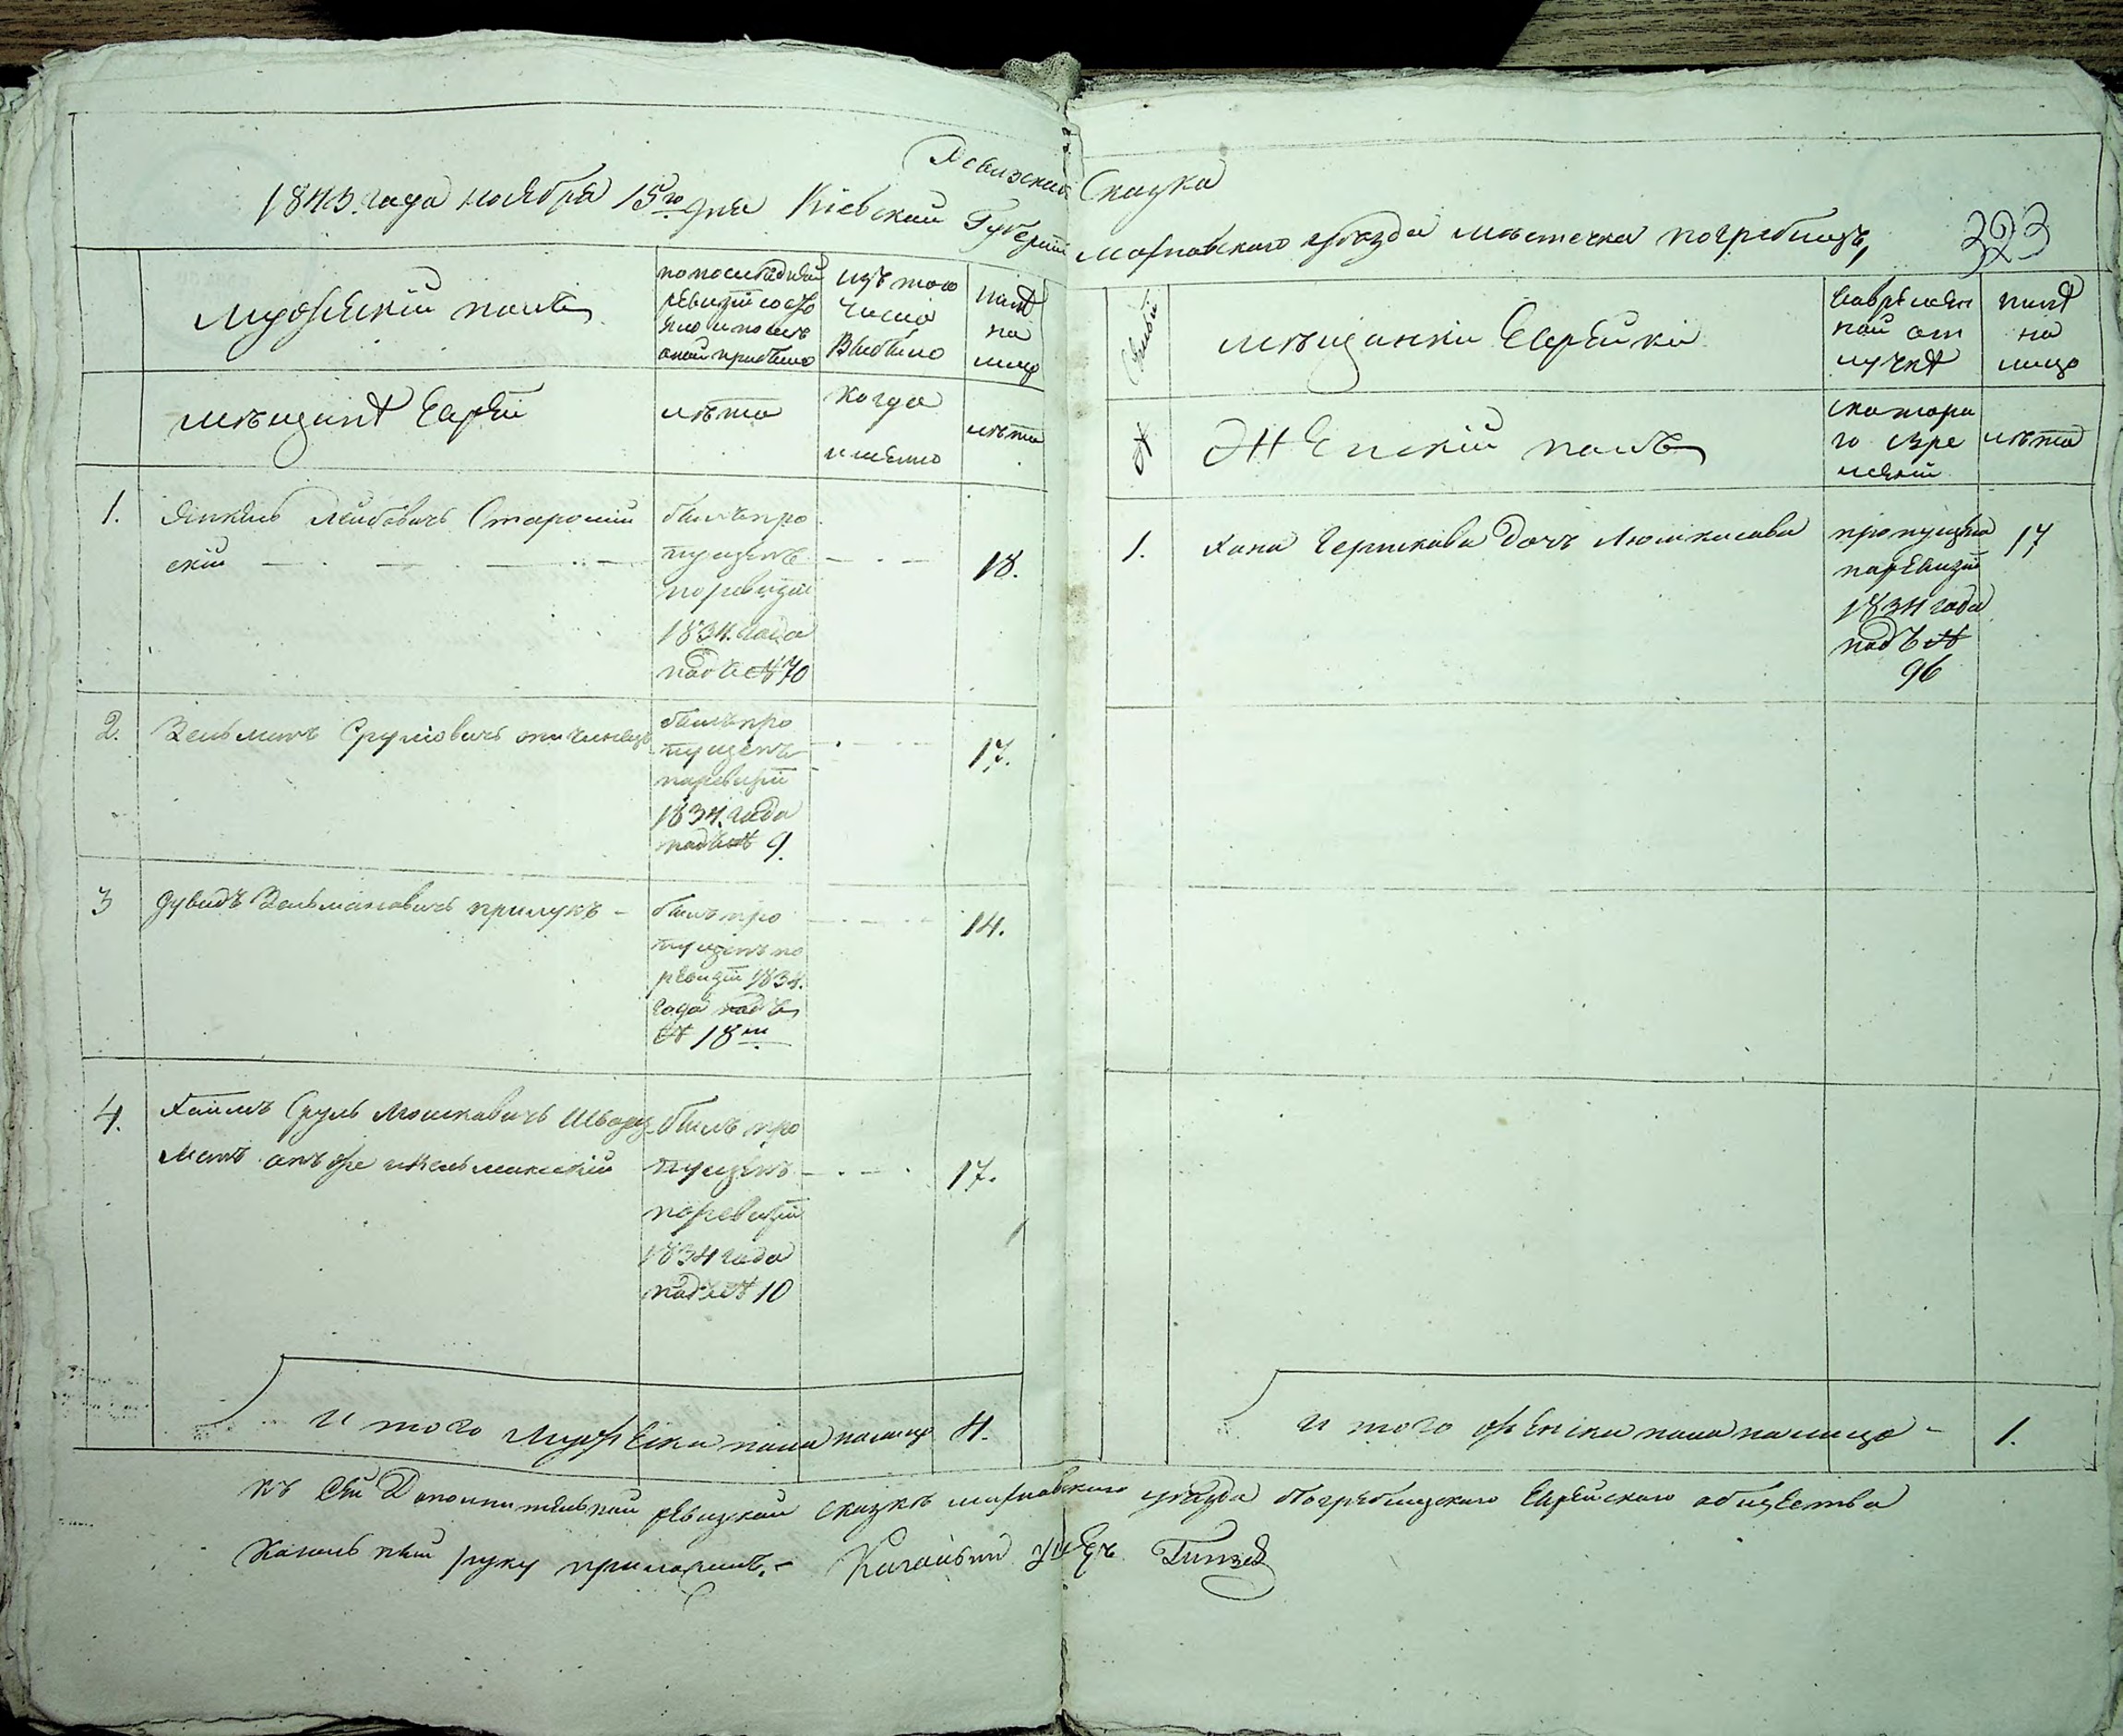 Ревизская Сказка
1843. года ноября 15го дня Кіевской Губерніи Махновского уезда местечка погребищь,
323
Мужескій полъ
по последней ревизіи состояло и после оной прибыло
изъ того числа Выбыло
ныне на лицо
мещане Евреи
лета
Когда именно
лета
1. Янкель Лейбовичь
скій
былъ про
пущенъ
по ревизіи
1834. года
подъ № 70
18.
2. Зельманъ Сруліовичь
былъ про
пущенъ
по ревизіи
1834. года
подъ № 9.
17.
3 Дувидъ Зельмановичь прилукъ
былъ про
пущенъ по
ревизіи 1834.
года подъ
№ 18м
14.
4. Хаимъ Сруль Мошковичь Шварц
манъ онъ же
былъ про
пущенъ
по ревизіи
1834 года
подъ № 10
17.
И того Мужеска пола на лицо 4.
Семьи
мещанки Еврейки
Во временной отлучке
ныне на лицо
№
Женскій полъ
с которого времени
лета
1. Хана Гершкова дочь
пропущена
по ревизіи
1834 года
подъ №
96
17
И того женска пола на лицо - 1.
Къ Сей Дополнительной ревизской сказке махновского уезда Погребищского Еврейского общества
Кагальный руку приложилъ. - Кагальный